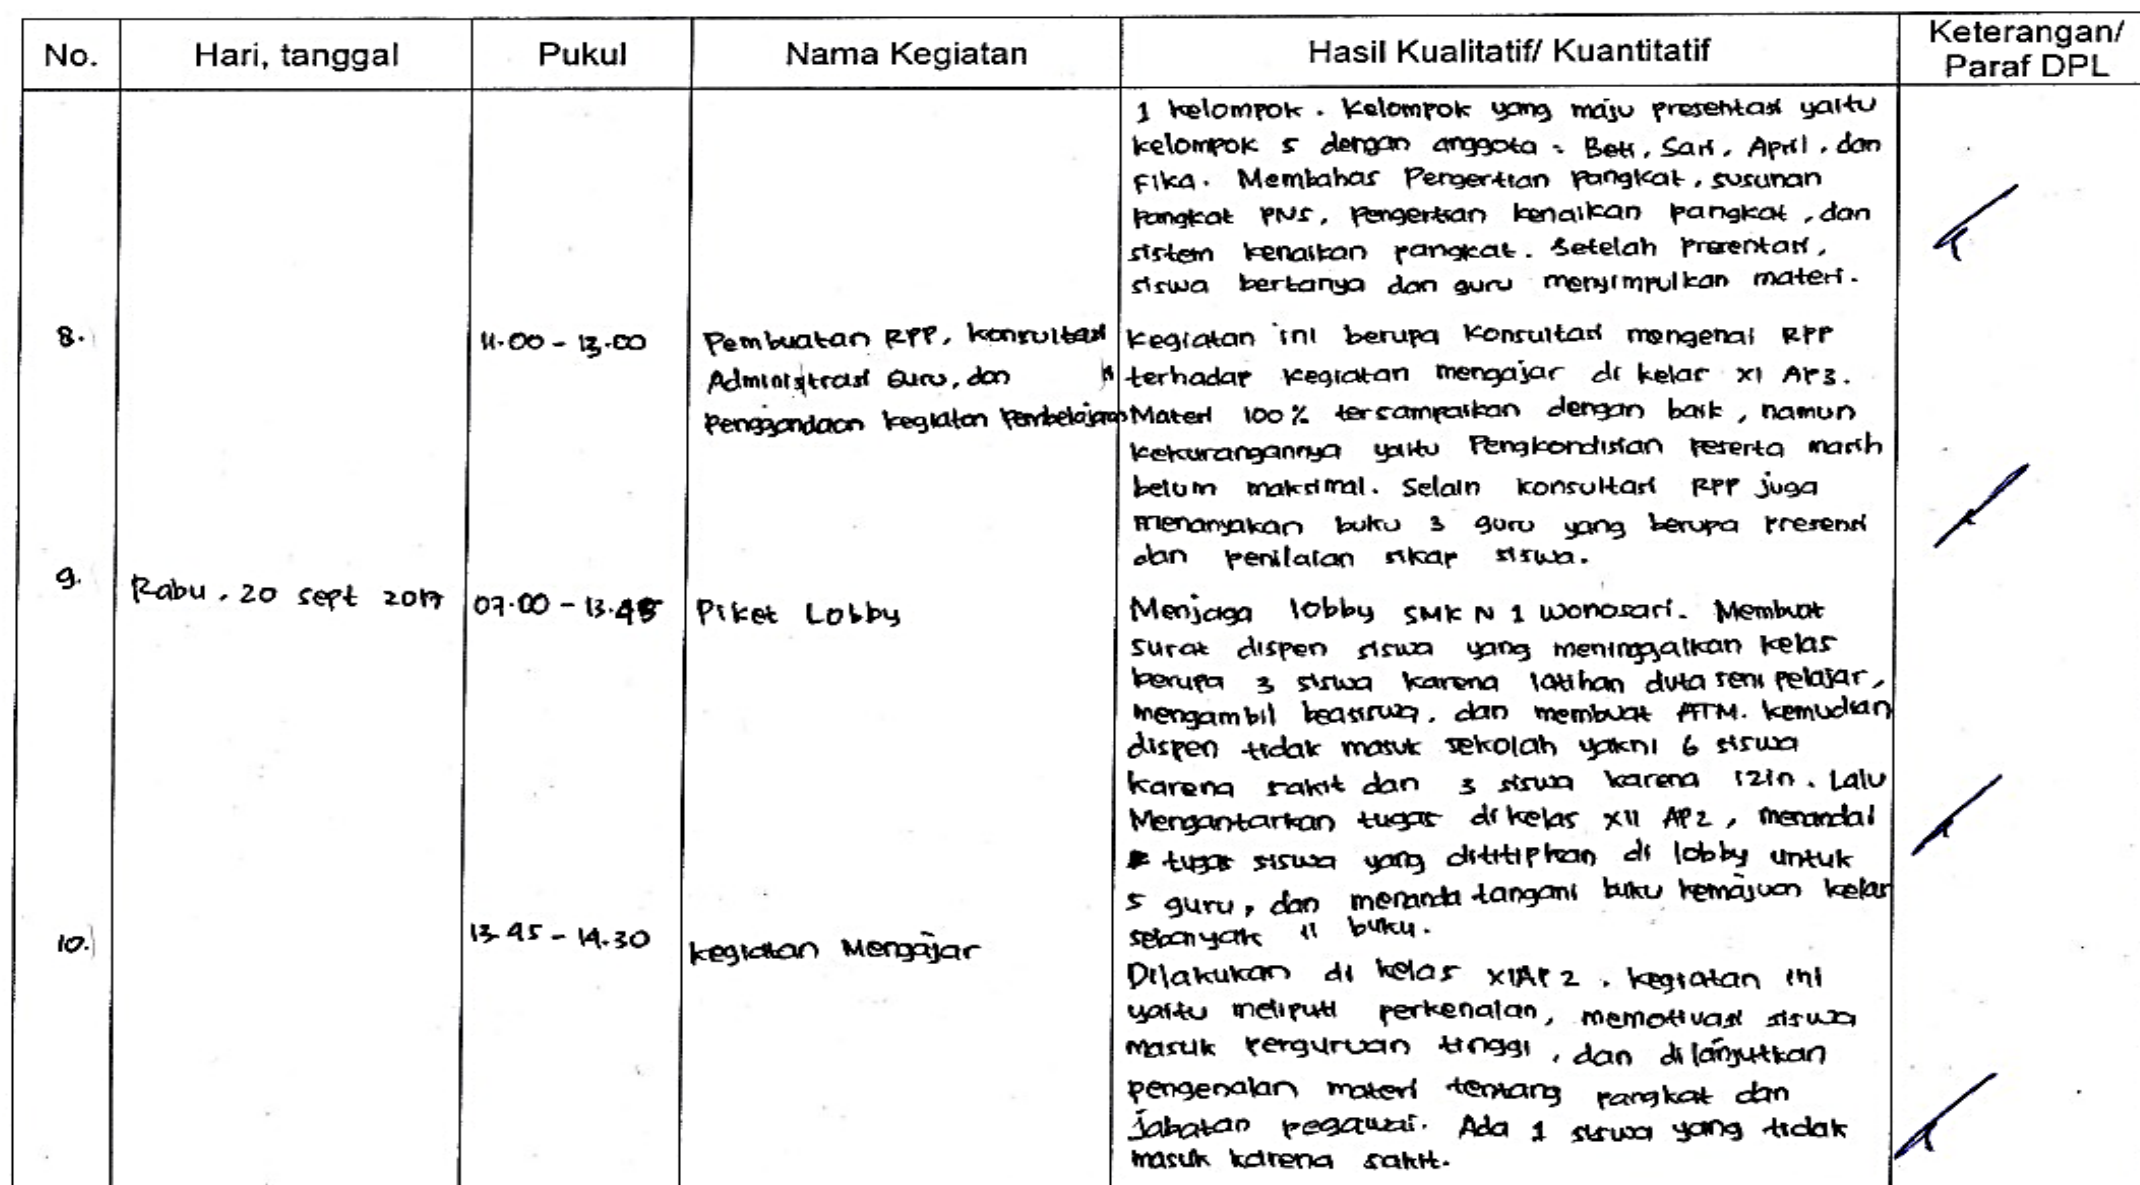 No. Hari, tanggal Pukul Nama Kegiatan Hasil Kualitatif/ Kuantitatif Keterangan/
Paraf DPL
1 kelompok. Kelompok yang maju presentasi yaitu
kelompok 5 dengan anggota : Beti, Sari, April, dan
Fika. Membahas Pengertian Pangkat, susunan
Pangkat PNS, Pengertian kenaikan pangkat, dan
sistem kenaikan pangkat. Setelah Presentasi,
siswa bertanya dan guru menyimpulkan materi.
8. 11.00 - 13.00 Pembuatan RPP, konsultasi Kegiatan ini berupa Konsultasi mengenai RPP
Administrasi Guru, dan terhadap kegiatan mengajar di kelas XI AP3.
Penggandaan kegiatan Pembelajaran Materi 100% tersampaikan dengan baik, namun
kekurangannya yaitu Pengkondisian peserta masih
belum maksimal. Selain konsultasi RPP juga
menanyakan buku 3 guru yang berupa presensi
dan penilaian sikap siswa.
9. Rabu, 20 sept 2017 07.00 - 13.45 Piket Lobby Menjaga lobby SMK N 1 Wonosari. Membuat
surat dispen siswa yang meninggalkan kelas
berupa 3 siswa karena latihan duta seni pelajar,
mengambil beasiswa, dan membuat ATM. Kemudian
dispen tidak masuk sekolah yakni 6 siswa
karena sakit dan 3 siswa karena izin. Lalu
Mengantarkan tugas di kelas XII AP2, menandai
tugas siswa yang dititipkan di lobby untuk
5 guru, dan menanda tangani buku kemajuan kelas
sebanyak 11 buku.
10. 13.45 - 14.30 kegiatan Mengajar
Dilakukan di kelas XIAP 2. kegiatan ini
yaitu meliputi perkenalan, memotivasi siswa
masuk perguruan tinggi, dan dilanjutkan
pengenalan materi tentang pangkat dan
jabatan pegawai. Ada 1 siswa yang tidak
masuk karena sakit.